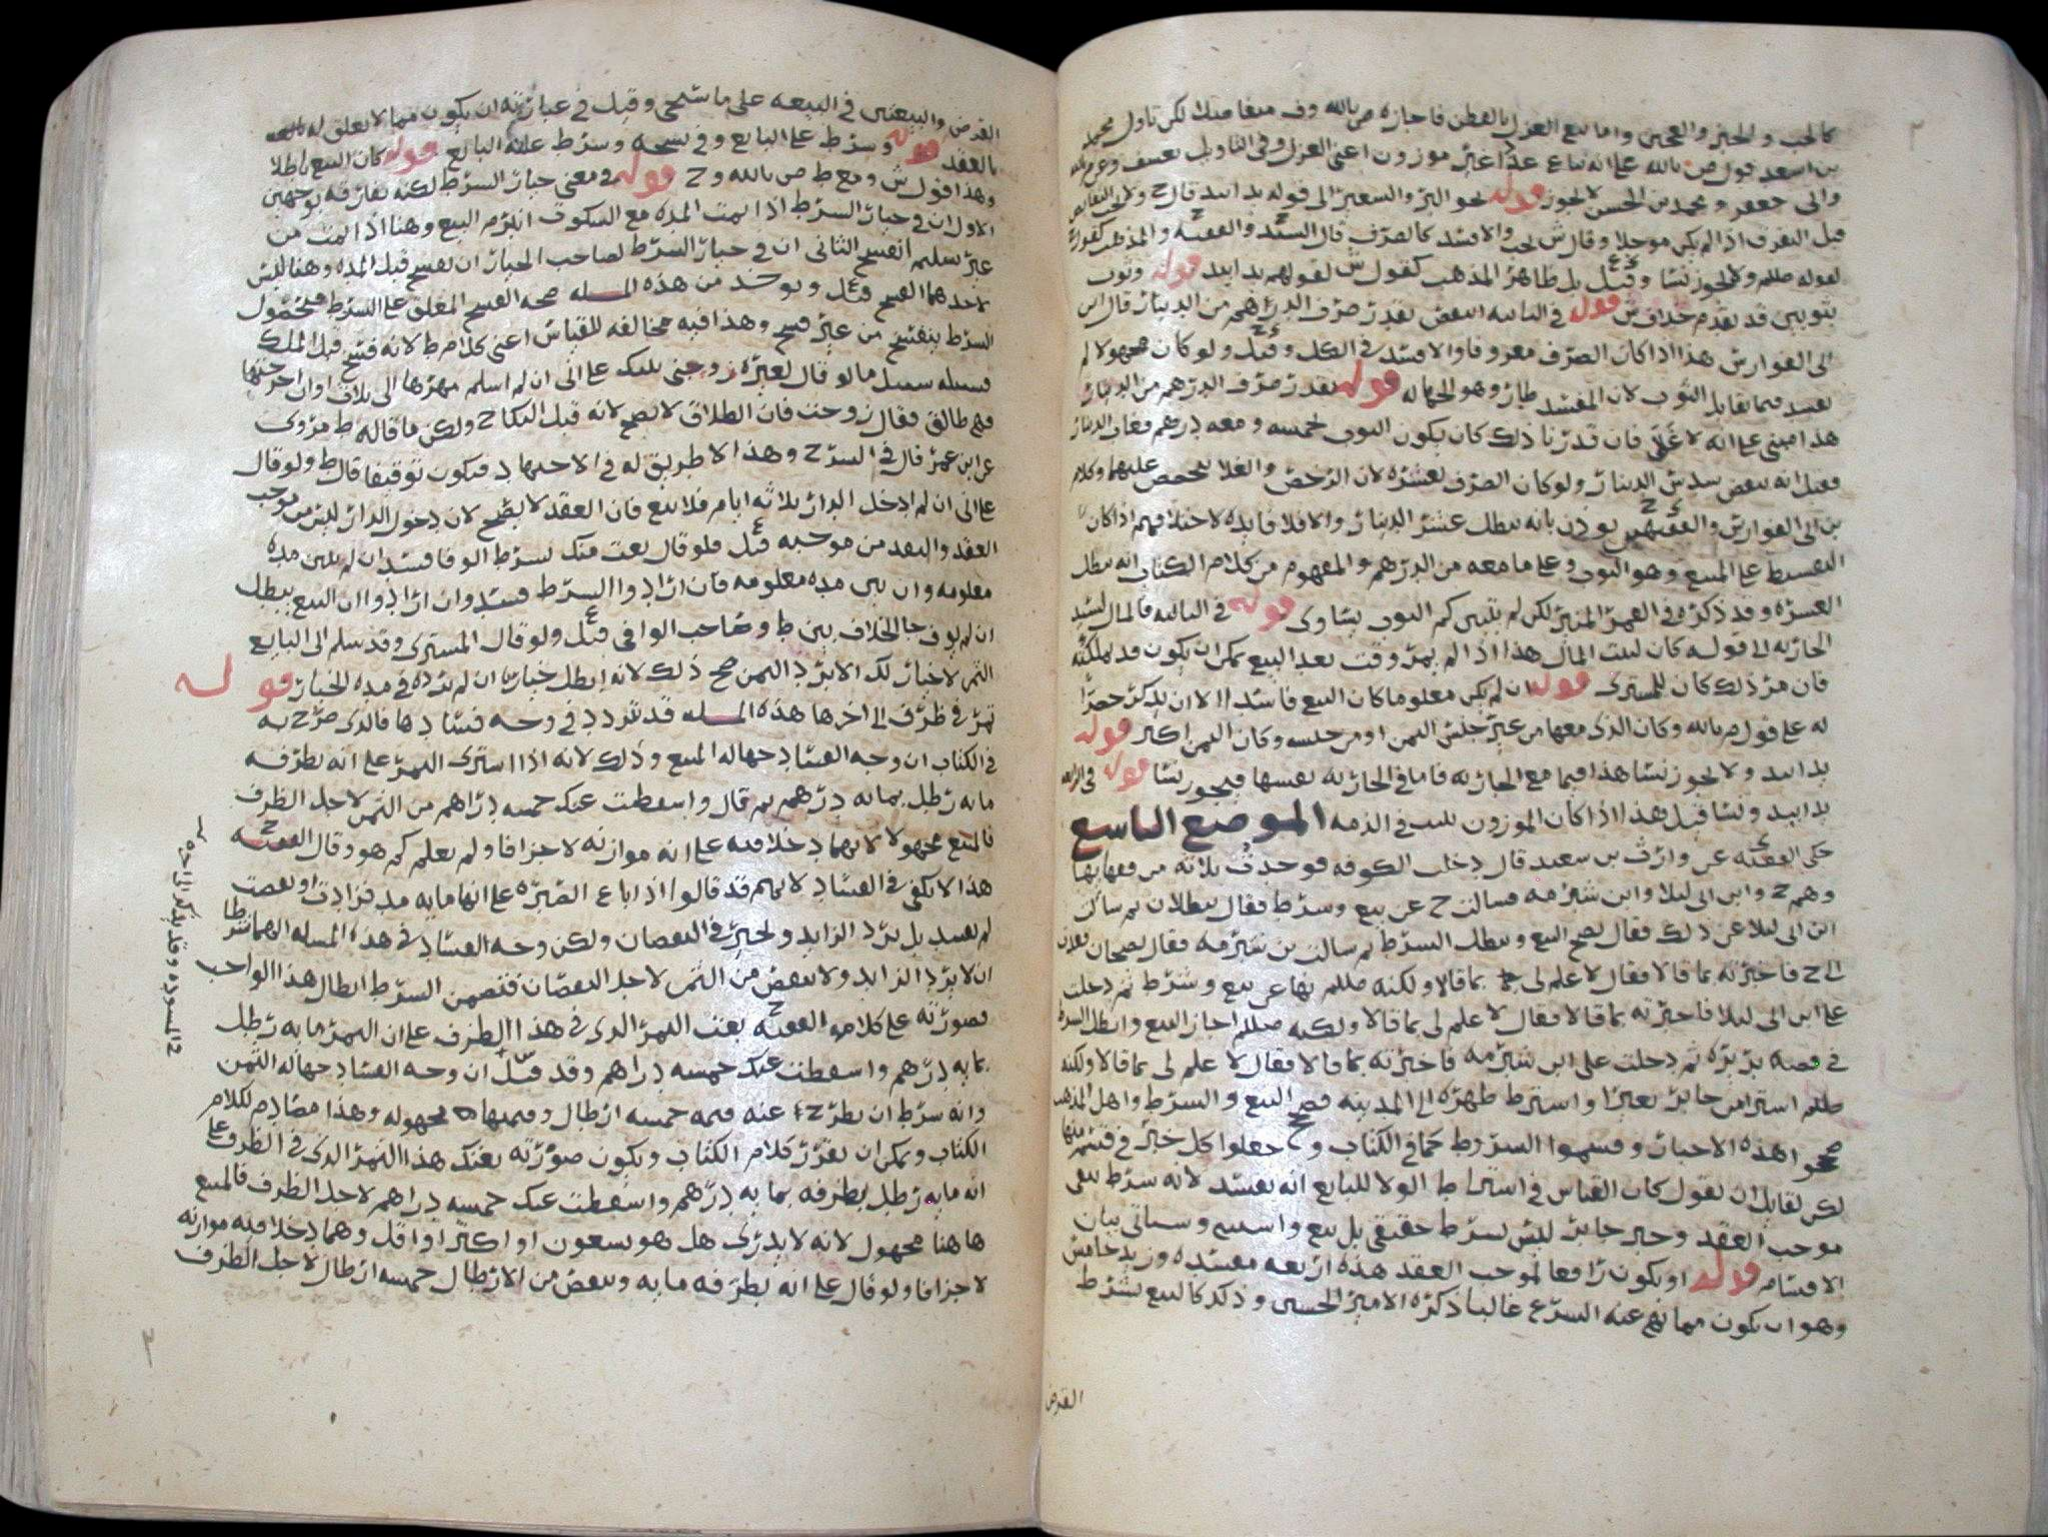 كالحب والخبز والعجين واما بيع الغزل بالقطن فاجازه ص بالله وف متفاضلا لكن تاول محمد
بن اسعد قول ص بالله على انه يباع عددا غير موزون اعني الغزل وفي التاويل تعسف وعن
والى جعفر ومحمد بن الحسن لا يجوز قوله نحو البر والشعير الى قوله يدا بيد قال ح
قبل التفرق اذا لم يكن موجلا وقال ش يجب والا فسد كالصرف قال السيد ح والفقيه ح والمذهب كقول ش
لقوله صللم ولا يجوز نسا وقيل ع بل ظاهر المذهب كقول ش لقولهم يدا بيد قوله وثوب
بثوبين قد تقدم خلاف ش قوله في الثانيه انتقض بقدر صرف الدراهم من الدينار قال ابن
ابي الفوارس هذا اذا كان الصرف معروفا والا فسد في الكل وقيل ح ولو كان مجهولا لم
يفسد فيما يقابل الثوب لان المفسد طار وهو الجهاله قوله بقدر صرف الدرهم من الدينار
هذا مبني على انه لا غلى فان قدرنا ذلك كان يكون الثوب بخمسه ومعه درهم فقال الدينار
فقيل انه ينقض سدس الدينار ولو كان الصرف بعشره لان الرخص والغلا يحصص عليهما وكلام
بن ابي الفوارس والفقيهين ح يوذن بانه يبطل عشر الدينار والا فلا فايده لاختلافهم اذا كان
التقسيط على المبيع وهو الثوب وعلى ما معه من الدرهم والمفهوم من كلام الكتاب انه يبطل
العشره وقد ذكره في القمر المنير لكن لم يبين كم الثوب يساوي قوله في الثالثه فالمال لسيد
الجاريه الى قوله كان لبيت المال هذا اذا لم يمر وقت بعد البيع يمكن ان يكون قد يملكته
فان مر ذلك كان للمشتري قوله ان لم يكن معلوما كان البيع فاسدا الا ان يذكر حصرا
له على قول ص بالله وكان الذي معها من غير جنس الثمن او من جنسه وكان الثمن اكثر قوله
يدا بيد ولا يجوز نسا هذا فيما مع الجاريه فاما في الجاريه نفسها فيجوز نسا قوله في الرابعه
يدا بيد ونسا قيل هذا اذا كان الموزون يثبت في الذمه الموضع التاسع
حكى الفقيه ع عن وارث بن سعيد قال دخلت الكوفه فوجدت ثلاثه من فقهايها
وهم ح وابن ابي ليلا وابن شبرمه فسالت ح عن بيع وشرط فقال يبطلان ثم سالت
ابن ابي ليلا عن ذلك فقال يصح البيع ويبطل الشرط ثم سالت بن شبرمه فقال يصحان فعدت
الى ح فاخبرته بما قالا فقال لا علم لي بما قالا ولكنه صللم نها عن بيع وشرط ثم دخلت
على ابن ابي ليلا فاخبرته بما قالا فقال لا علم لي بما قالا ولكنه صللم اجاز البيع وابطل الشرط
في قصه بريره ثم دخلت على ابن شبرمه فاخبرته بما قالا فقال لا علم لي بما قالا ولكنه
صللم اشترى من جابر بعيرا واشترط ظهره الى المدينه فصح البيع والشرط واهل المذهب
صححوا هذه الاخبار وقسموا الشروط كما في الكتاب وجعلوا كل خبر في قسم منها
لكن لقايل ان يقول كان القياس في اشتراط الولا للبايع انه يفسد لانه شرط ينفي
موجب العقد وخبر جابر ليس بشرط حقيقي بل بيع واستثنى وسياتي بيان
الاقسام قوله او يكون رافعا لموجب العقد هذه اربعه مفسده وزيد خامس
وهو ان يكون مما نهى عنه الشرع غالبا ذكره الامير الحسين وذلك كالبيع بشرط
القرض
القرض والبيعتين في البيعه على ما سيجي وقيل في عبارته ان يكون مما لا تعلق له
بالعقد قوله وشرط على البايع وفي نسخه وشرط عليه البايع قوله كان البيع باطلا
وهذا قول ش ومع ط ص بالله وح قوله في معنى خيار الشرط لكنه يفارقه بوجهين
الاول ان في خيار الشرط اذا تمت المده مع السكوت انبرم البيع وهنا اذا تمت من
غير تسليم انفسخ الثاني ان في خيار الشرط لصاحب الخيار ان يفسخ قبل المده وهنا ليس
لاحدهما الفسخ قيل ع ويوخذ من هذه المسله صحه الفسخ المعلق على الشرط فبحصول
الشرط ينفسخ من غير فسخ وهذا فيه مخالفه للقياس اعني كلام ط لانه فسخ قبل الملك
فسبيله سبيل ما لو قال لغيره زوجني بنتك على اني ان لم اسلم مهرها الى ثلاث
فهي طالق فقال زوجت فان الطلاق لا يصح لانه قبل النكاح ولكن ما قاله ط مروي
عن ابن عمر قال في الشرح وهذا لا طريق له في الاجتهاد فيكون توقيفا قال ط ولو قال
على اني ان لم ادخل الدار ثلاثه ايام فلا بيع فان العقد لا يصح لان دخول الدار ليس من موجب
العقد والنقد من موجبه قيل ع فلو قال بعت منك بشرط الوفا فسد ان لم يبين مده
معلومه وان بين مده معلومه فان ارادوا الشرط فسد وان ارادوا ان البيع يبطل
ان لم يوف جا الخلاف بين ط وصاحب الوافي قيل ع ولو قال المشتري وقد سلم الى البايع
الثمن لا خيار لك الا برد الثمن صح ذلك لانه ابطل خياره ان لم يرده في مده الخيار قوله
تمر في ظرف الى اخرها هذه المسله قد تردد في وجه فسادها فالذي صرح به
في الكتاب ان وجه الفساد جهاله المبيع وذلك لانه اذا اشترى التمر على انه بظرفه
مايه رطل بمايه درهم ثم قال واسقطت عنك خمسه دراهم من الثمن لاجل الظرف
فالمبيع مجهولا لانهما دخلا فيه على انه موازنه لا جزافا ولم يعلم كم هو وقال الفقيه ح
هذا لا يكفي في الفساد لانهم قد قالوا اذا باع الصبره على انها مايه مد فزادت او نقصت
لم يفسد بل يرد الزايد ويخير في النقصان ولكن وجه الفساد في هذه المسله انهما شرطا
ان لا يرد الزايد ولا ينقص من الثمن لاجل النقصان فتضمن الشرط ابطال هذا الواجب
فصورته على كلام الفقيه ح بعت التمر الذي في هذا الظرف على ان التمر مايه رطل
بمايه درهم واسقطت عنك خمسه دراهم وقد قيل ان وجه الفساد جهاله الثمن
وانه شرط ان يطرح عنه قيمه خمسه ارطال وقيمتها مجهوله وهذا مصادم لكلام
الكتاب ويمكن ان يقرر كلام الكتاب ويكون صورته بعتك هذا التمر الذي في الظرف على
انه مايه رطل بظرفه بمايه درهم واسقطت عنك خمسه دراهم لاجل الظرف فالمبيع
هاهنا مجهول لانه لا يدري هل هو تسعون او اكثر او اقل وهما دخلا فيه موازنه
لا جزافا ولو قال على انه بظرفه مايه وينقص من الارطال خمسه ارطال لاجل الظرف